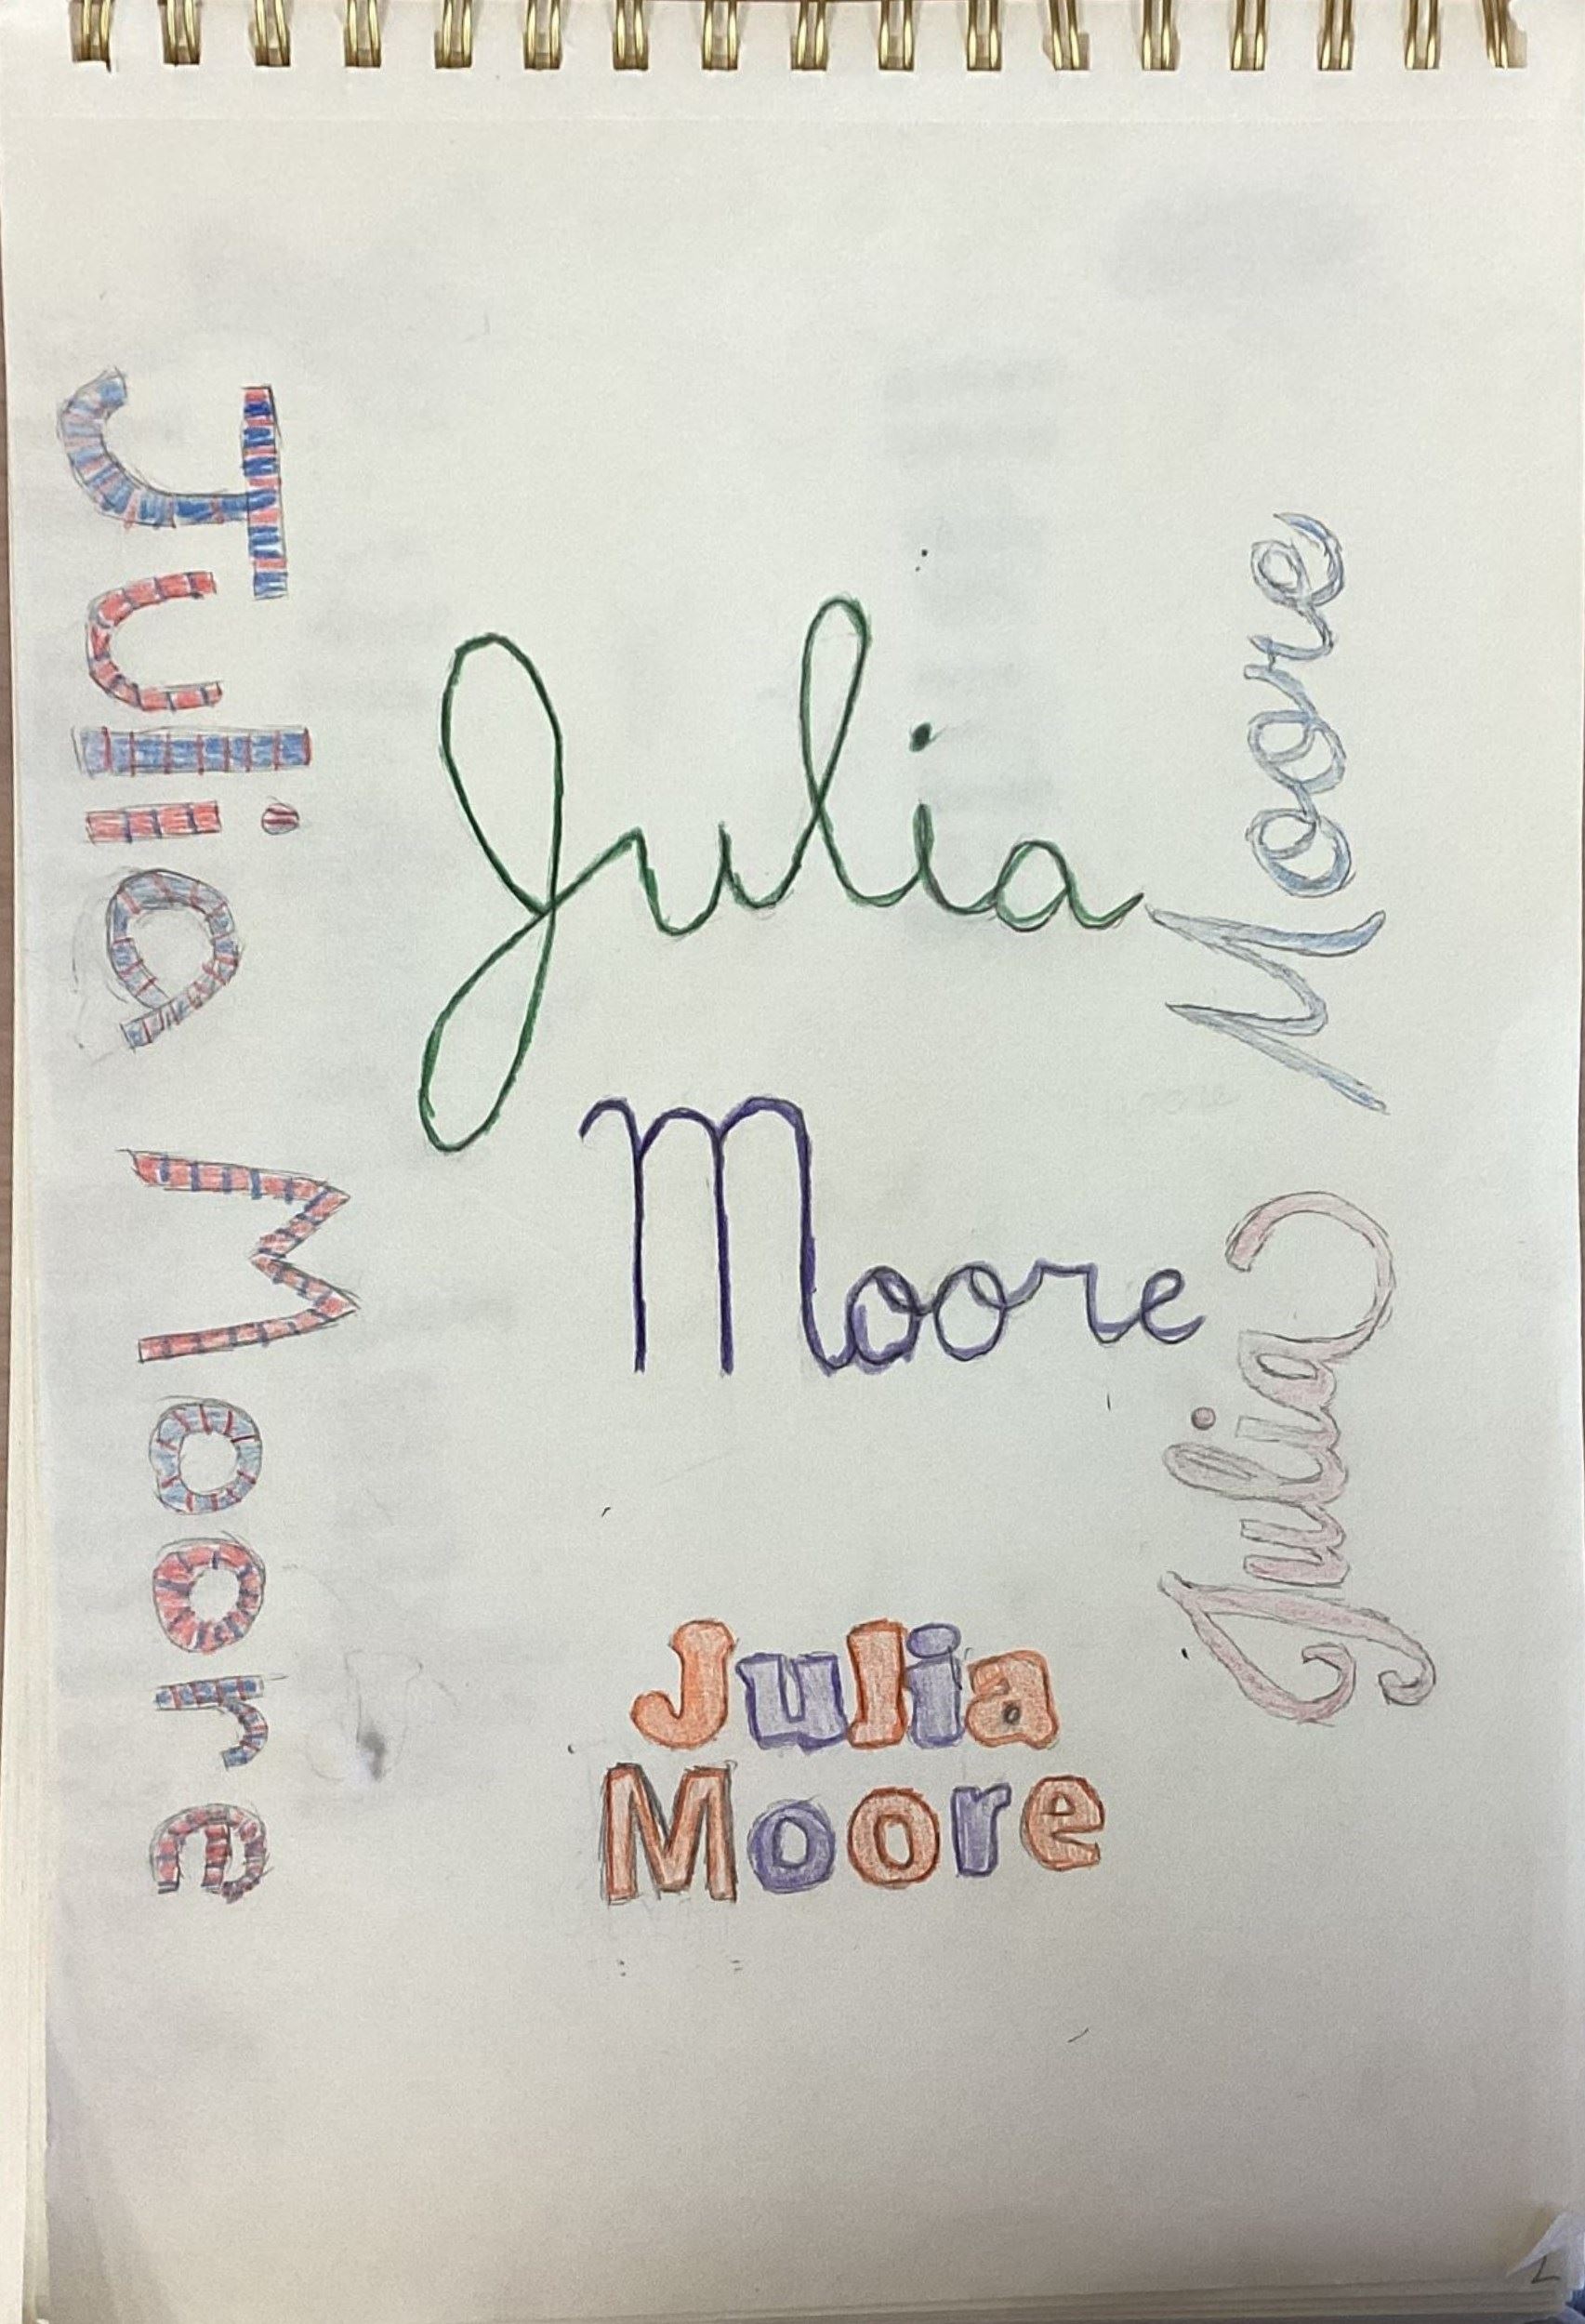 Julia Moore
Julia
Moore
Julia Moore
Julia
Moore